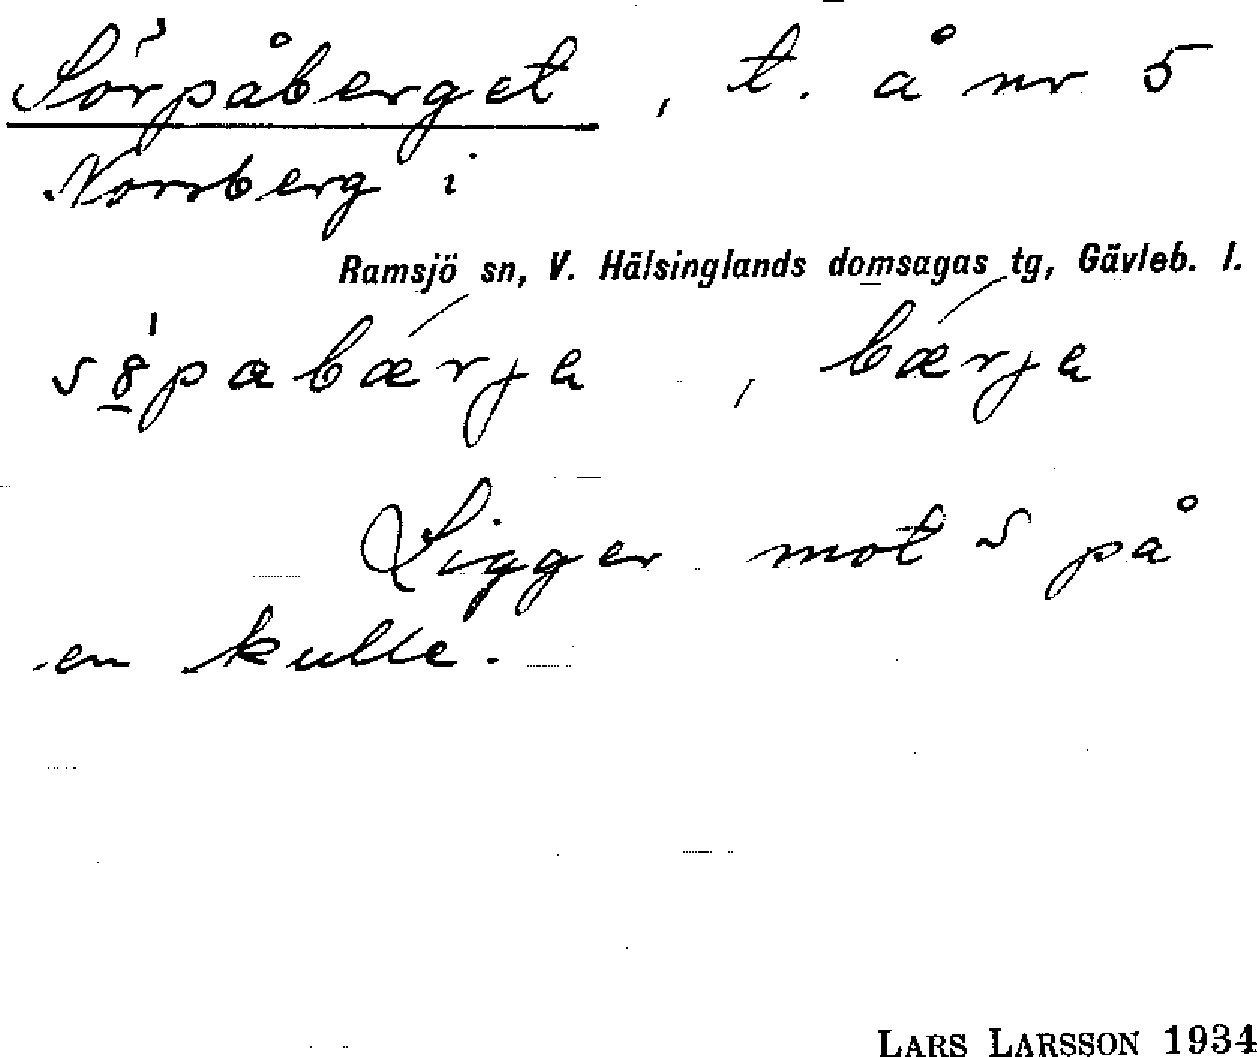 Sörpåberget, t. å nr 5
Norrberg i
Ramsjö sn, V. Hälsinglands domsagas tg, Gävleb. l.
söpabærja, bærja
Ligger mot S på
en kulle.
LARS LARSSON 1934